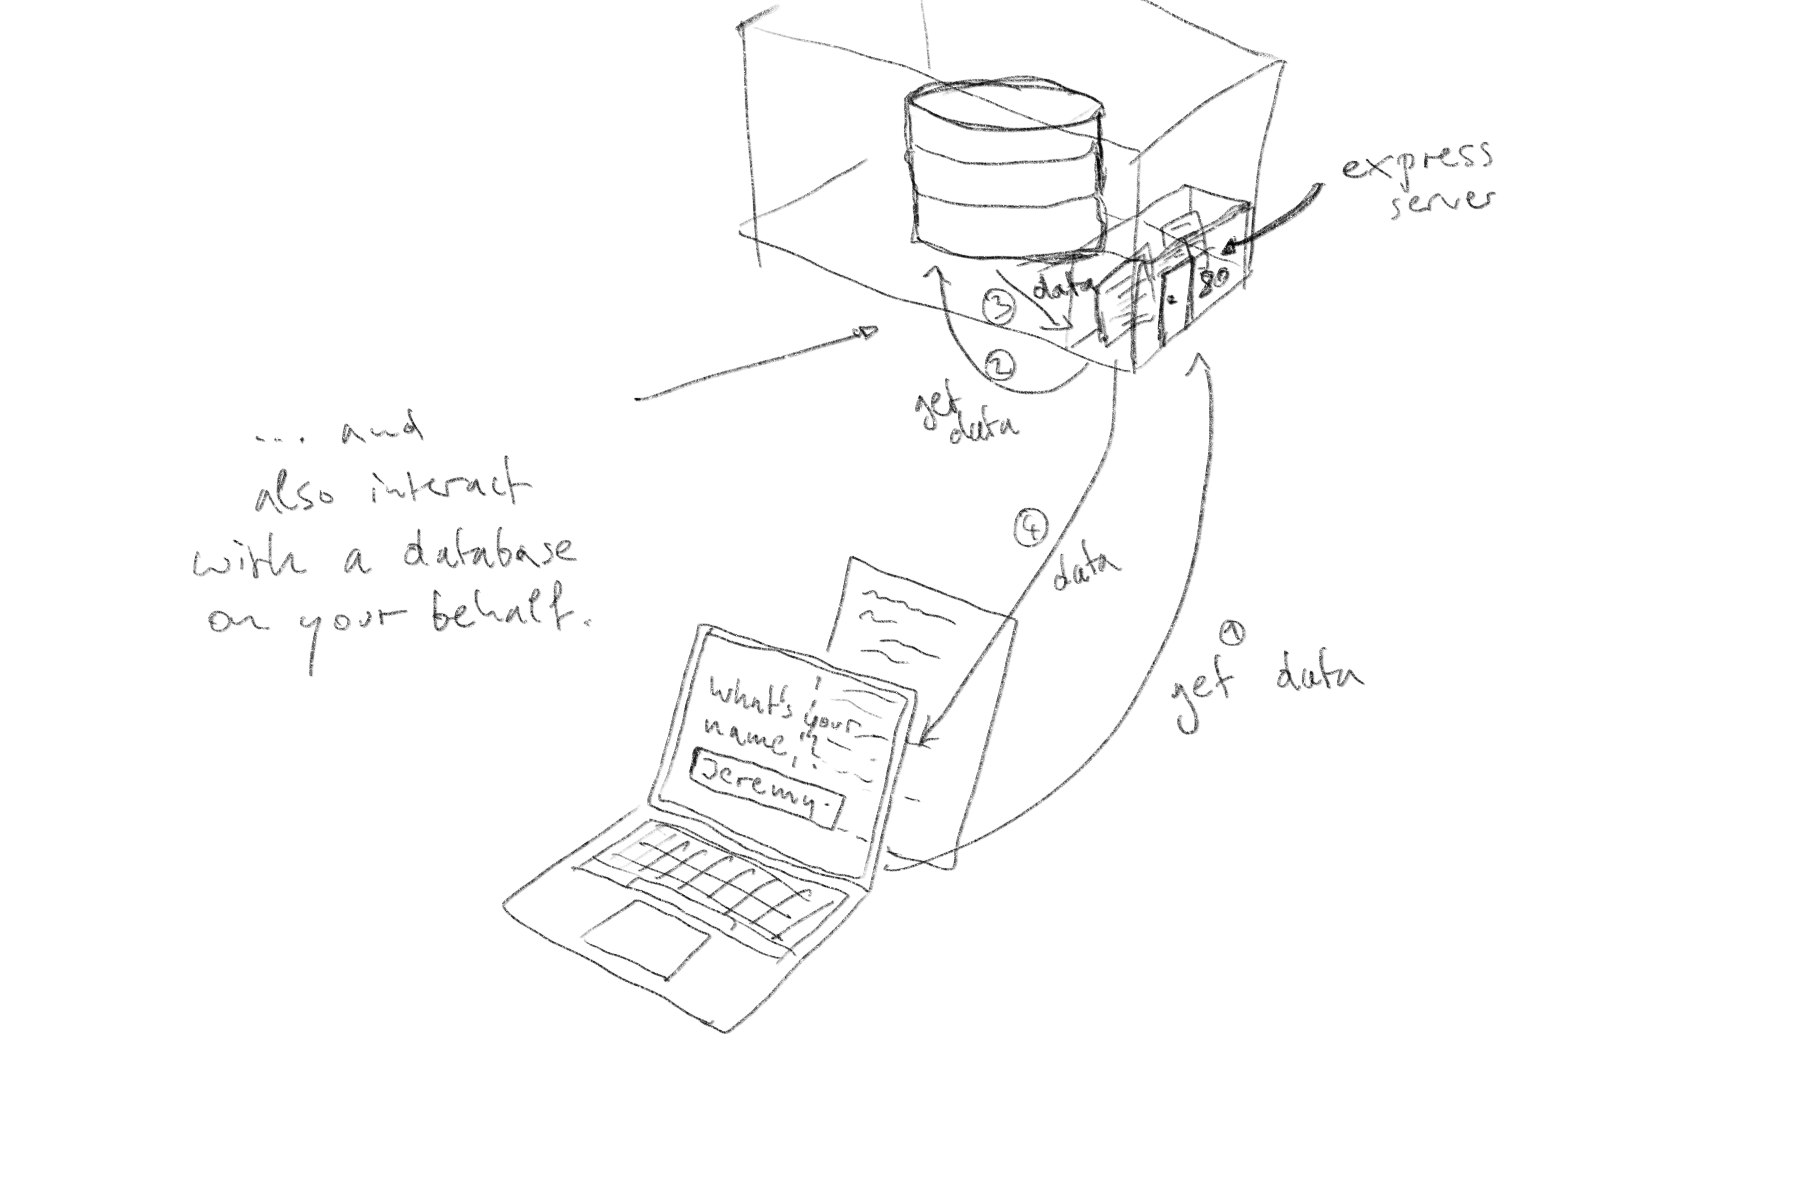 express
server
80
data
③
②
get
data
... and
also interact
with a database
on your behalf.
④
data
①
get data
What's your
name?
Jeremy.